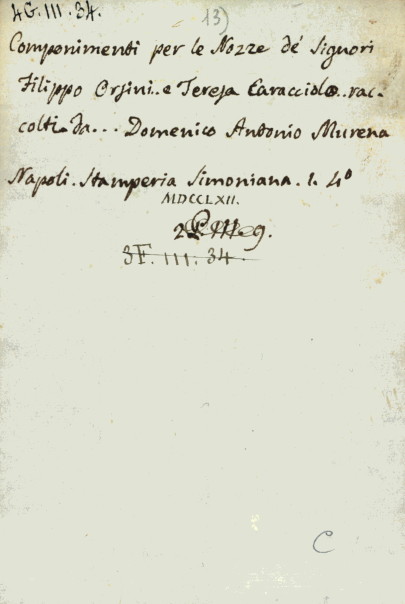 4G.III.34.
13)
Componimenti per le Nozze de' Signori
Filippo Orsini.. e Teresa Caracciolo.. rac-
colti da... Domenico Antonio Murena
Napoli. Stamperia Simoniana. 1. 4°
MDCCLXII.
3F.III.34.
C